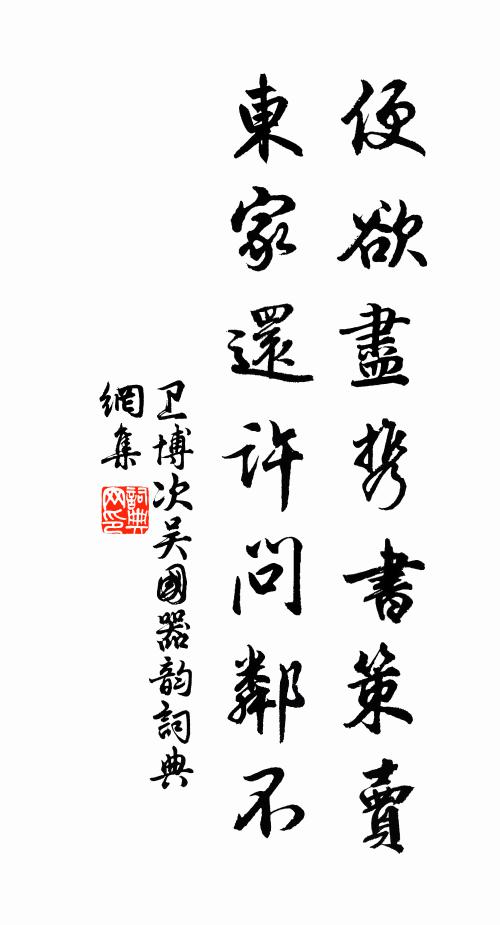 便欲盡携書策賣
東家還許問鄰不
卫博次吴國器韵詞典
網集
詞典網印